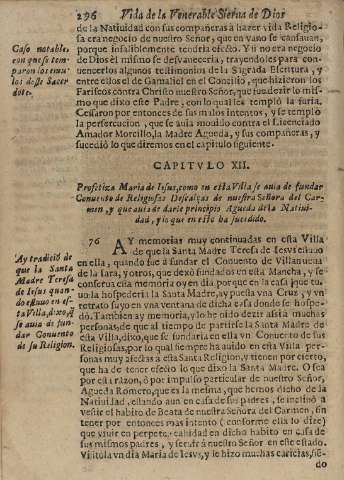 296 Vida de la Venerable Sierua de Dios
de la Natiuidad con sus compañeras à hazer vida Religiosa
era negocio de nuestro Señor, que en vano se cansauan,
porque infaliblemente tendria efecto. Y si no era negocio
de Dios él mismo se desvaneceria, trayendoles para conuencerlos
algunos testimonios de la Sagrada Escritura, y
entre ellos el de Gamaliel en el Concilio, que hizieron los
Fariseos contra Christo nuestro Señor, que fue dezir lo mismo
que dixo este Padre, con lo qual les templó la furia.
Cessaron por entonces de sus malos intentos, y se templò
la persecucion, que se auia mouido contra el Licenciado
Amador Morcillo, la Madre Agueda, y sus compañeras, y
sucediò lo que diremos en el capitulo siguiente.
Caso notable,
con que se templaron
los emulos
deste Sacerdote.
CAPITVLO XII.
Profetiza Maria de Iesus, como en esta Villa se auia de fundar
Conuento de Religiosas Descalças de nuestra Señora del Carmen,
y que auia de darle principio Agueda de la Natiuidad,
y lo que en esto ha sucedido.
76 AY memorias muy continuadas en esta Villa
de que la Santa Madre Teresa de Iesus estuuo
en ella, quando fue à fundar el Conuento de Villanueua
de la Iara, y otros, que dexò fundados en esta Mancha, y se
conserua esta memoria oy en dia porque en la casa que tuuo
la hospederia la Santa Madre, ay puesta vna Cruz, y vn
retrato suyo en vna ventana de dicha casa donde se hospedò.
Tambien ay memoria, y lo he oido dezir a esta muchas
personas, de que al tiempo de partirse la Santa Madre de
esta Villa, dixo, que se fundaria en ella vn Conuento de sus
Religiosas, por lo qual siempre ha auido en esta Villa personas
muy afectas a esta Santa Religion, y tienen por cierto,
que ha de tener efecto lo que dixo la Santa Madre. O sea
por esta razon, ò por impulso particular de nuestro Señor,
Agueda Romero, que es la mesma, que hemos dicho de la
Natiuidad, estando aun en casa de sus padres, se inclinó a
vestir el habito de Beata de nuestra Señora del Carmen, sin
tener por entonces mas intento (conforme ella lo dize)
que viuir en perpetua castidad en dicho habito en casa de
sus mismos padres, y seruir à nuestro Señor en este estado.
Visitòla vn dia Maria de Iesvs, y le hizo muchas caricias,
Ay tradicion de
que la Santa
Madre Teresa
de Iesus quando
estuuo en esta
Villa, dixo, q̃
se auia de fundar
Conuento
de su Religion.